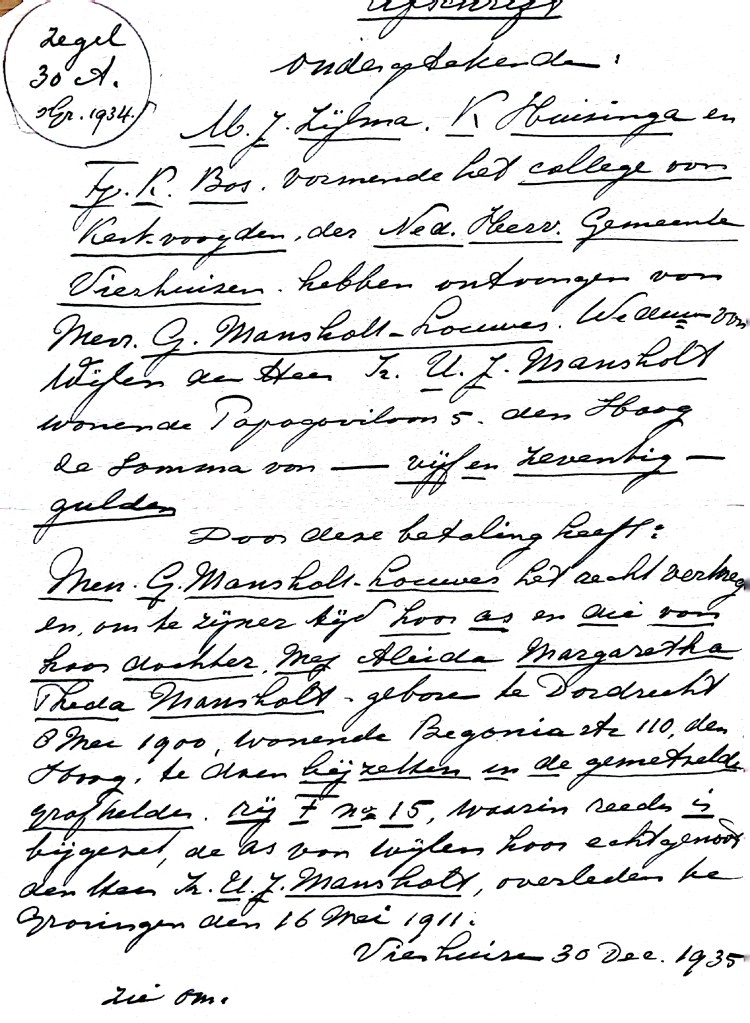 Afschrift
Zegel
30 ct.
Gr. 1934.
Ondergetekenden:
M. J. Zijlma. K Huisinga en
Fp. K. Bos. vormende het college van
Kerkvoogden, der Ned. Herv. Gemeente
Vierhuizen. hebben ontvangen van
Mevr. G. Mansholt-Louwes. Weduwe van
Wijlen den Heer Ir. U. J. Mansholt
wonende Papagovilaan 5. den Haag
de Somma van — vijf en zeventig —
gulden
Door deze betaling heeft:
Mevr. G. Mansholt-Louwes het recht verkreg
en, om te zijner tijd haar as en die van
haar dochter, Mej Aleida Margaretha
Theda Mansholt - geboren te Dordrecht
8 Mei 1900, wonende Begonia str 110, den
Haag, te doen bijzetten in de gemetselde
grafkelder. rij F no 15, waarin reeds is
bijgezet, de as van wijlen haar echtgenoot
den Heer Ir. U. J. Mansholt, overleden te
Groningen den 16 Mei 1911.
Vierhuizen 30 Dec. 1935
zie om.